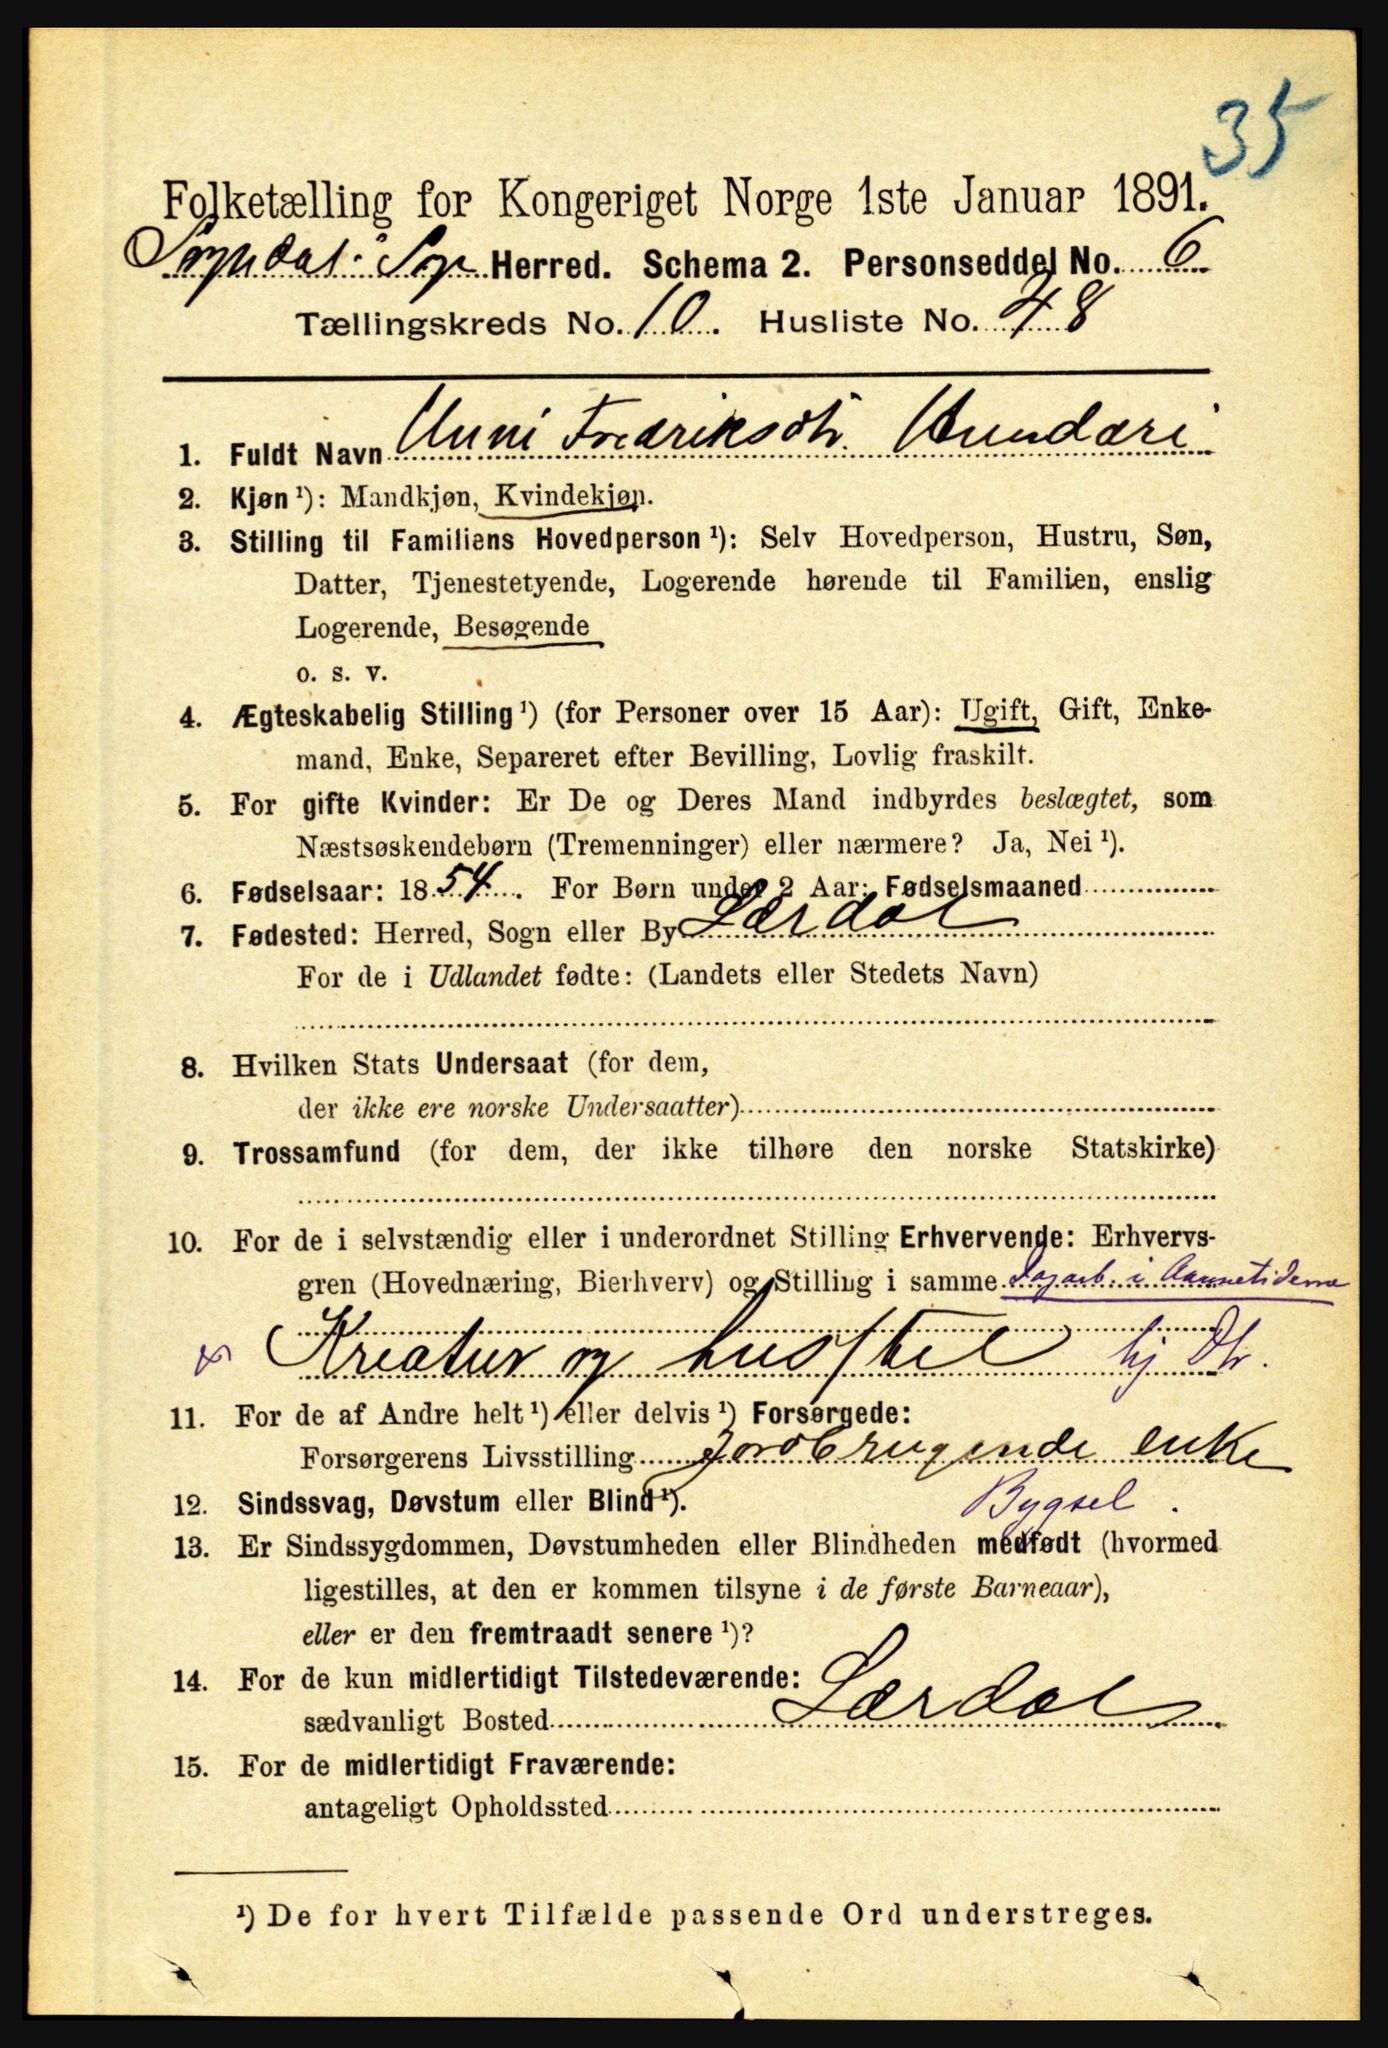 35
Folketælling for Kongeriget Norge 1ste Januar 1891.
Sogndal i Sogn Herred. Schema 2. Personseddel No. 6
Tællingskreds No. 10. Husliste No. 48
1. Fuldt Navn Unni Fredriksdtr. Hundere
2. Kjøn ¹): Mandkjøn, Kvindekjøn.
3. Stilling til Familiens Hovedperson ¹): Selv Hovedperson, Hustru, Søn,
Datter, Tjenestetyende, Logerende hørende til Familien, enslig
Logerende, Besøgende
o. s. v.
4. Ægteskabelig Stilling ¹) (for Personer over 15 Aar): Ugift, Gift, Enke-
mand, Enke, Separeret efter Bevilling, Lovlig fraskilt.
5. For gifte Kvinder: Er De og Deres Mand indbyrdes beslægtet, som
Næstsøskendebørn (Tremenninger) eller nærmere? Ja, Nei ¹).
6. Fødselsaar: 1854. For Børn under 2 Aar: Fødselsmaaned
7. Fødested: Herred, Sogn eller By Lærdal
For de i Udlandet fødte: (Landets eller Stedets Navn)
8. Hvilken Stats Undersaat (for dem,
der ikke ere norske Undersaatter)
9. Trossamfund (for dem, der ikke tilhøre den norske Statskirke)
10. For de i selvstændig eller i underordnet Stilling Erhvervende: Erhvervs-
gren (Hovednæring, Bierhverv) og Stilling i samme Dagarb. i Aannetiderne
Kreatur og husstel hj Dtr.
11. For de af Andre helt ¹) eller delvis ¹) Forsørgede:
Forsørgerens Livsstilling Jordbrugende enke
12. Sindssvag, Døvstum eller Blind ¹). Bygsel.
13. Er Sindssygdommen, Døvstumheden eller Blindheden medfødt (hvormed
ligestilles, at den er kommen tilsyne i de første Barneaar),
eller er den fremtraadt senere ¹)?
14. For de kun midlertidigt Tilstedeværende:
sædvanligt Bosted Lærdal
15. For de midlertidigt Fraværende:
antageligt Opholdssted
¹) De for hvert Tilfælde passende Ord understreges.